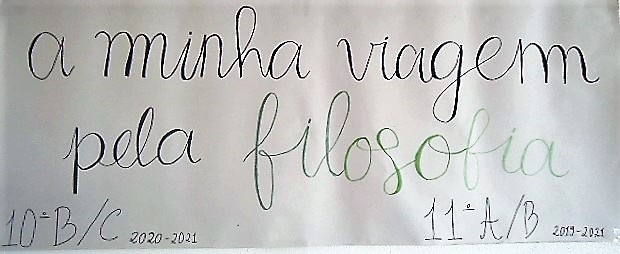 a minha viagem
pela filosofia
10º B/C 2020-2021 11º A/B 2019-2021